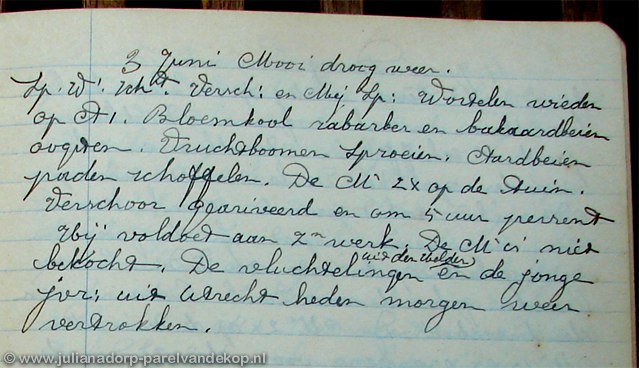 3 Juni Mooi droog weer.
Sp. W. Sch. Versch: en Mej Sp: Wortelen wieden
op A1. Bloemkool rabarber en bakaardbeien
oogsten. Vruchtboomen Sproeien. Aardbeien
paden schoffelen. De Mr 2x op de tuin.
Verschoor gearriveerd en om 5 uur present
Hij voldoet aan zn werk. De Mr is niet
bekocht. De vluchtelingen uit den Helder en de jonge
jvr: uit Utrecht heden morgen weer
vertrokken.
© www.julianadorp-parelvandekop.nl